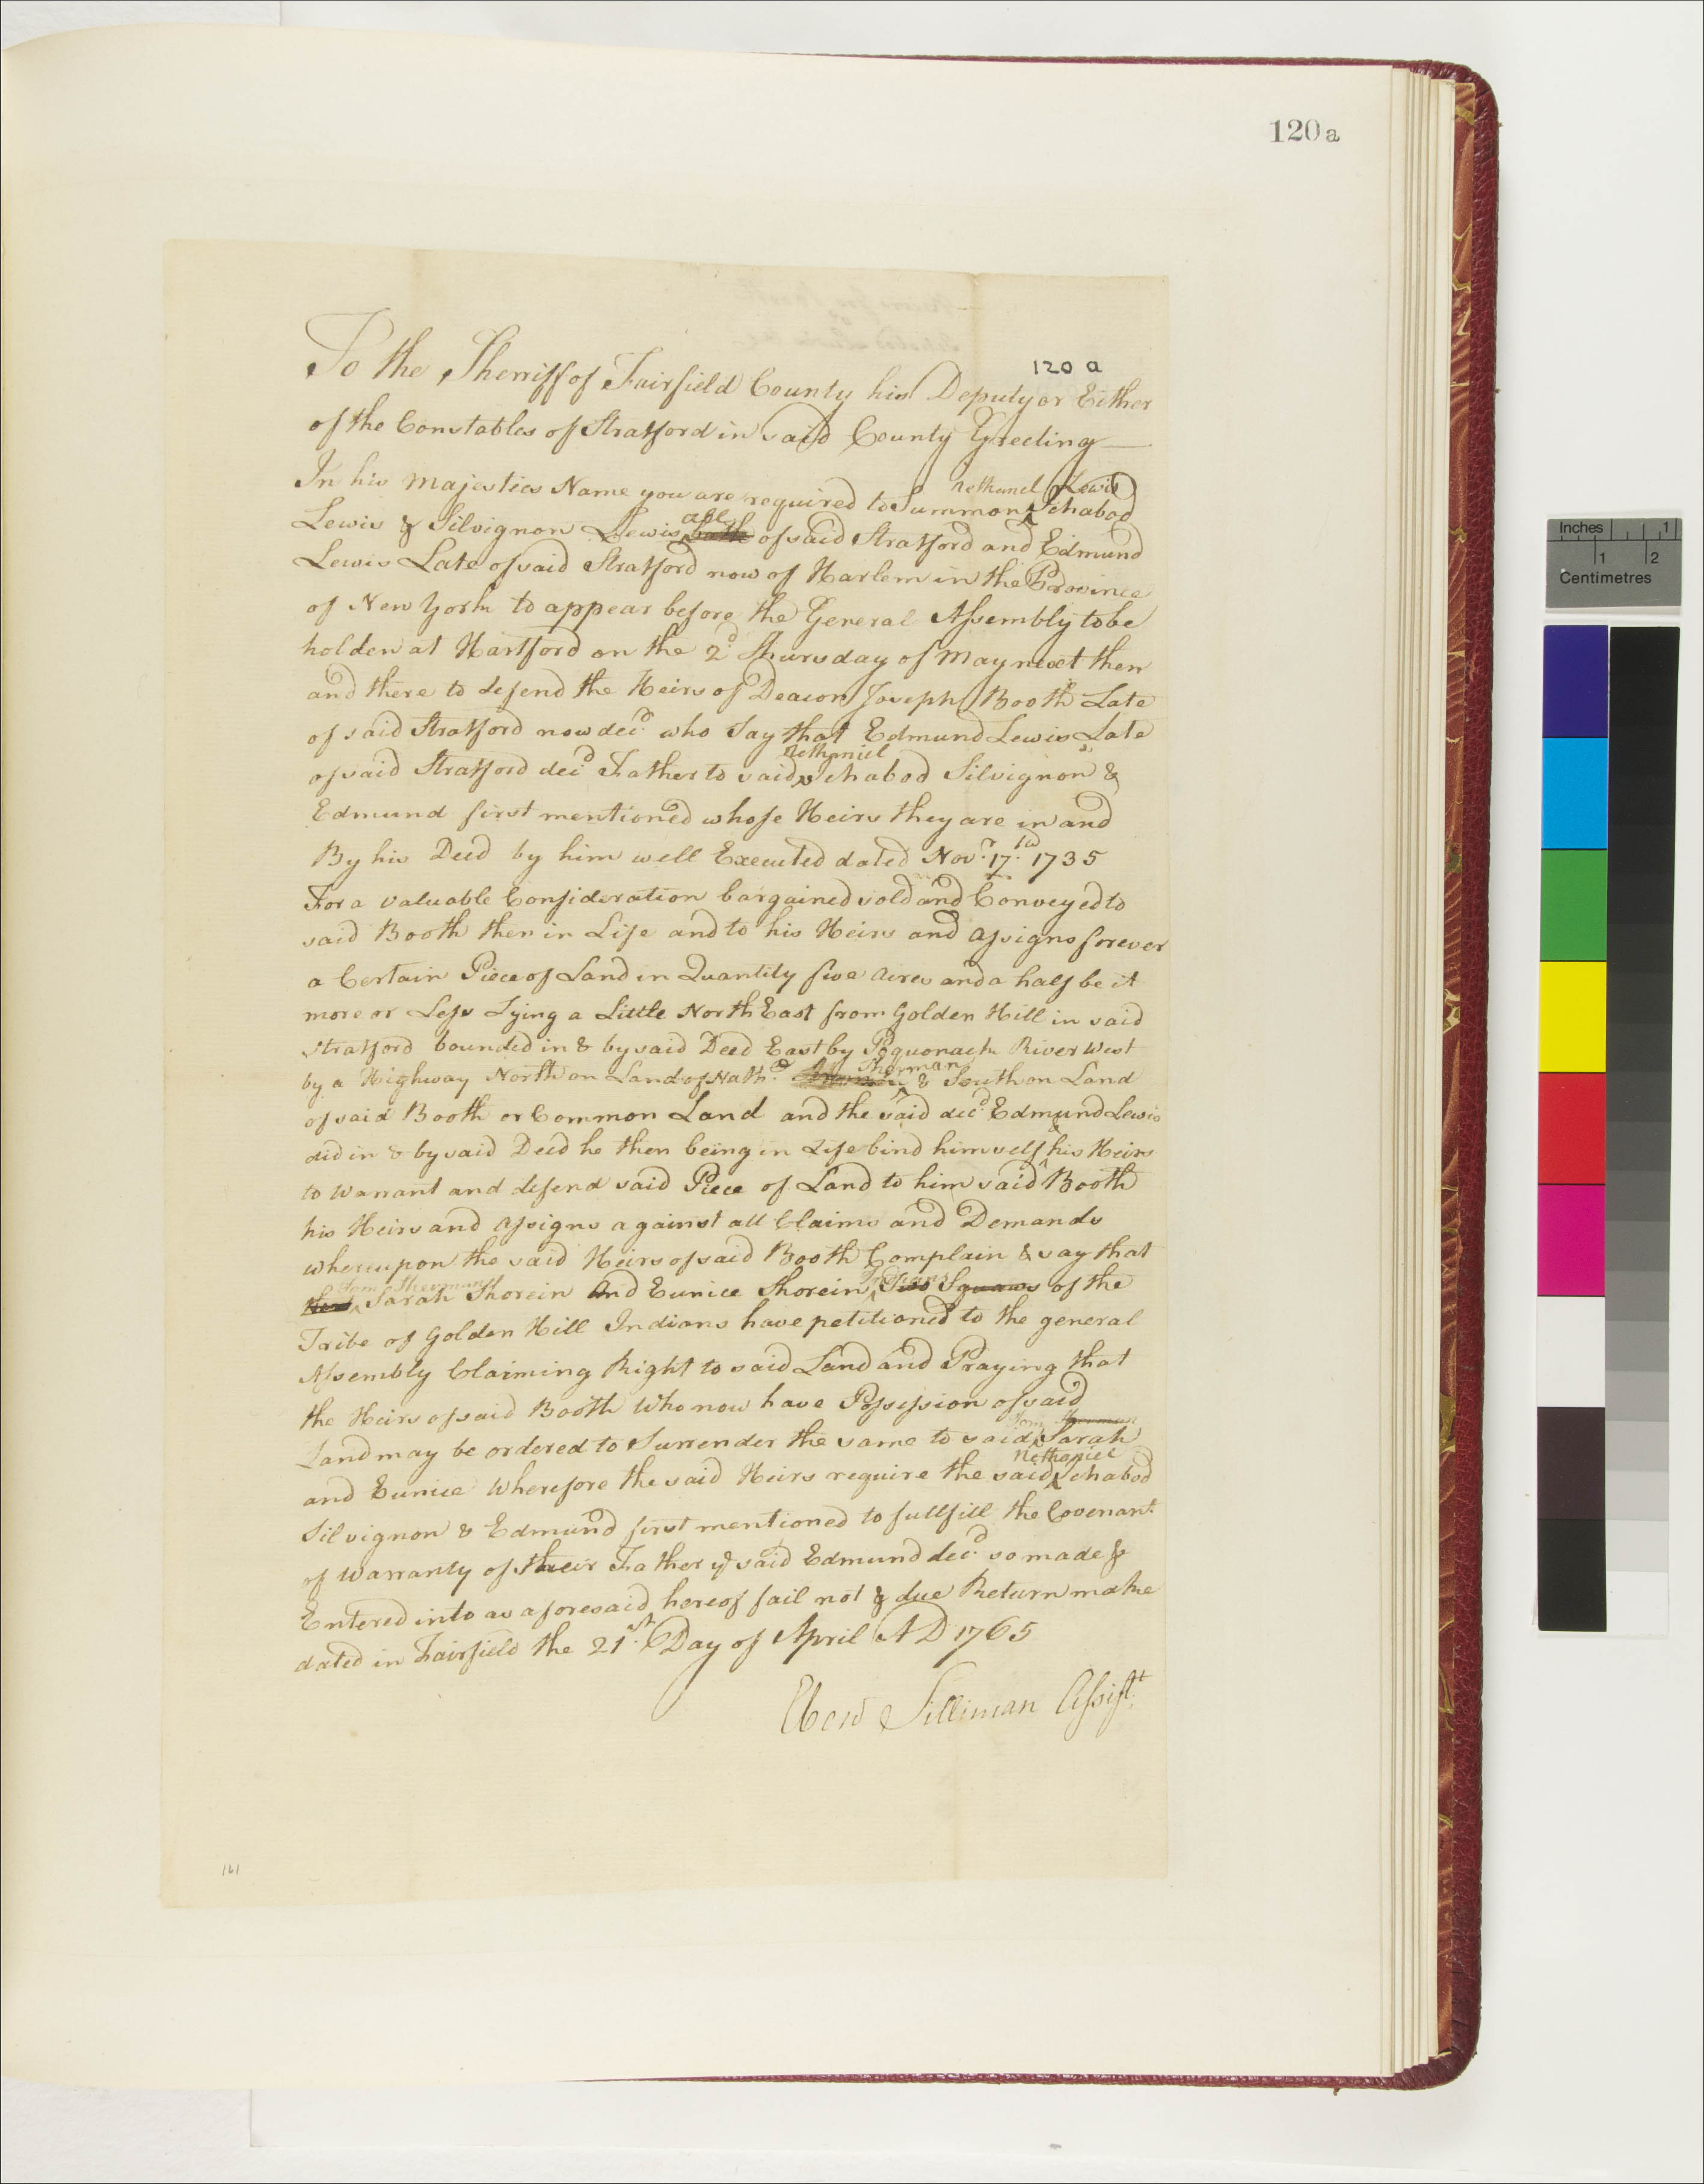 120 a
120 a
To the Sherriff of Fairfield County his Deputy or Either
of the Constables of Stratford in said County Greeting
In his Majesties Name you are required to Summon Nethanel Lewis Ichabod
Lewis & Silvignon Lewis all both of said Stratford and Edmund
Lewis Late of said Stratford now of Harlem in the Province
of New York to appear before the General Assembly to be
holden at Hartford on the 2d. Thursday of May next then
and there to defend the Heirs of Deacon Joseph Booth Late
of said Stratford now decd. who Say that Edmund Lewis Late
of said Stratford decd Father to said Nethaniel Ichabod Silvignon &
Edmund first mentioned whose Heirs they are in and
By his Deed by him well Executed dated Novr. 17. 1735
For a valuable Consideration bargained sold and Conveyed to
said Booth then in Life and to his Heirs and assigns forever
a Certain Piece of Land in Quantity five acres and a half be it
more or Less Lying a Little North East from Golden Hill in said
Stratford bounded in & by said Deed East by Poquonack River West
by a Highway North on Land of Nathll. Sherman & South on Land
of said Booth or Common Land and the said decd. Edmund Lewis
did in & by said Deed he then being in Life bind himself & his Heirs
to Warrant and defend said Piece of Land to him said Booth
his Heirs and assigns against all Claims and Demands
whereupon the said Heirs of said Booth Complain & say that
Tom Sherman Sarah Shorein And Eunice Shorein Indians Two Squaws of the
Tribe of Golden Hill Indians have petitioned to the general
Assembly Claiming Right to said Land and Praying that
the Heirs of said Booth Who now have Possession of said
Land may be ordered to Surrender the same to said Tom Sherman Sarah
and Eunice Wherefore the said Heirs require the said Nethaniel Ichabod
Silvignon & Edmund first mentioned to fullfill the Covenant
of Warranty of their Father ye said Edmund decd. so made &
Entered into as aforesaid hereof fail not & due Return make
dated in Fairfield the 21st. Day of April AD 1765
Ebenr Silliman Assistt.
121